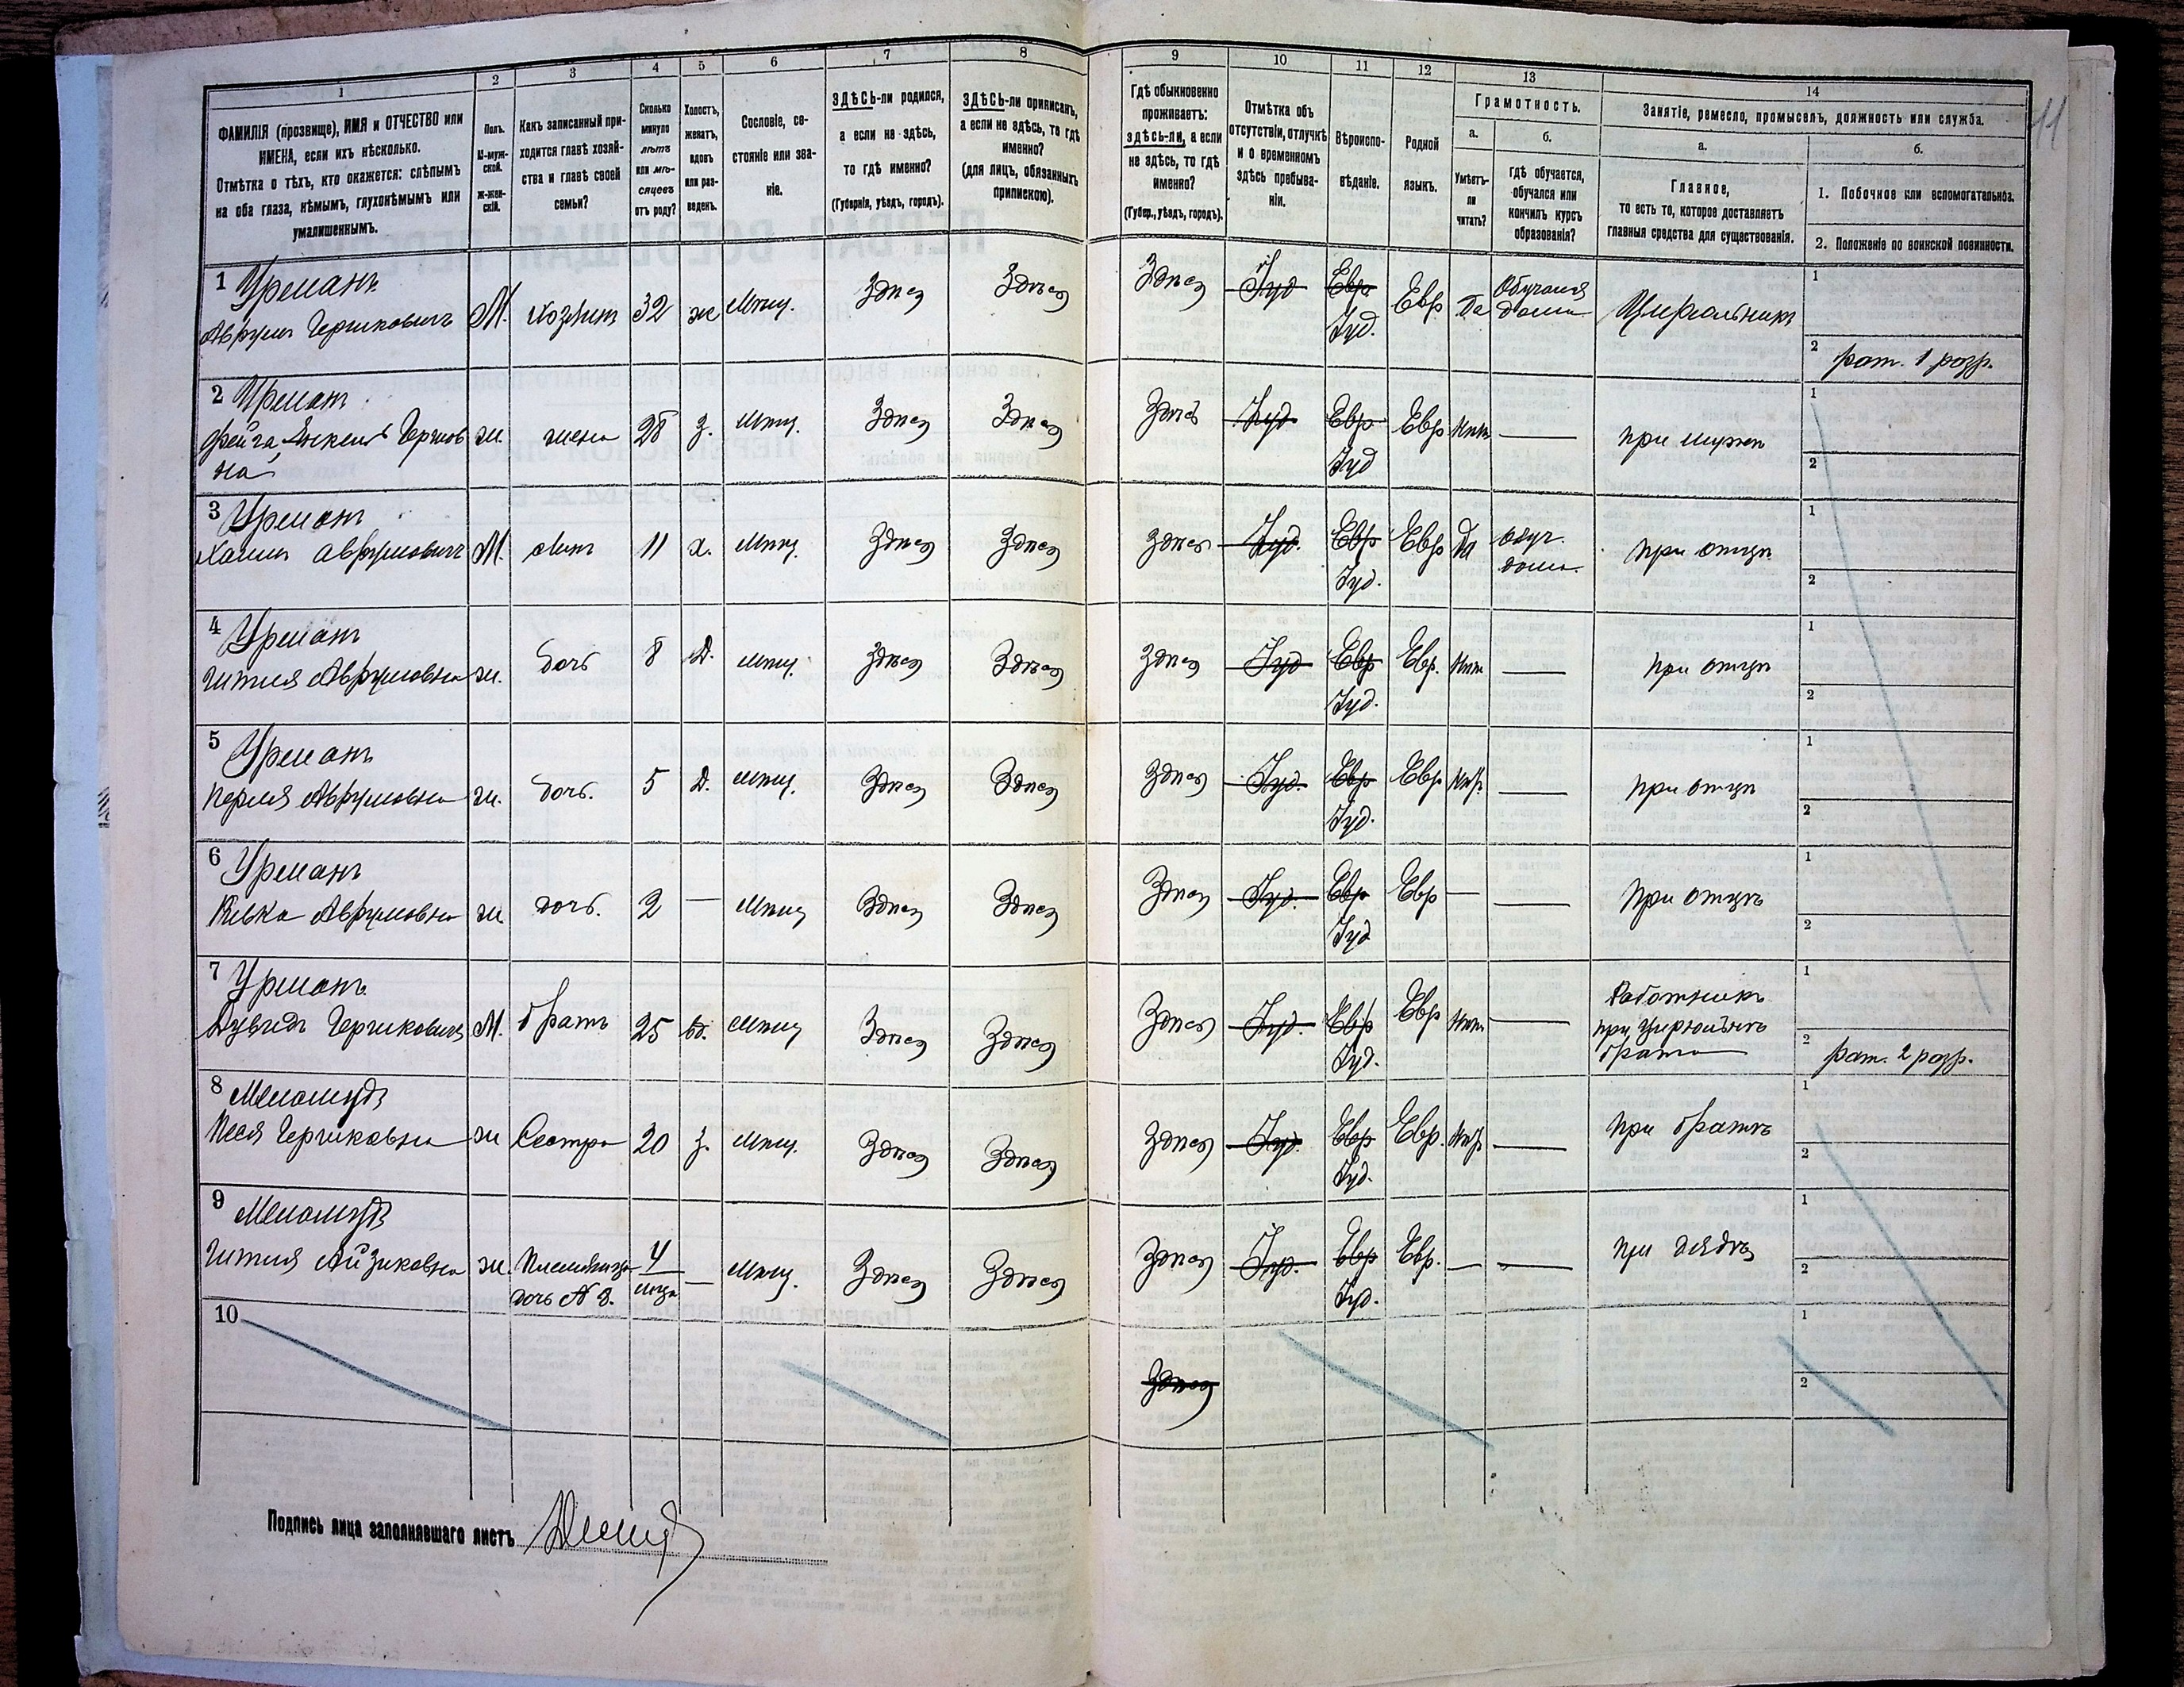 1 2 3 4 5 6 7 8 9 10 11 12 13 14
11
ФАМИЛІЯ (прозвище), ИМЯ и ОТЧЕСТВО или
ИМЕНА, если ихъ нѣсколько.
Отмѣтка о тѣхъ, кто окажется: слѣпымъ
на оба глаза, нѣмымъ, глухонѣмымъ или
умалишеннымъ.
Полъ.
М-муж-
ской.
Ж-жен-
скій.
Какъ записанный при-
ходится главѣ хозяй-
ства и главѣ своей
семьи?
Сколько
минуло
лѣтъ
или мѣ-
сяцевъ
отъ роду?
Холостъ,
женатъ,
вдовъ
или раз-
веденъ.
Сословіе, со-
стояніе или зва-
ніе.
ЗДѢСЬ-ли родился,
а если не здѣсь,
то гдѣ именно?
(Губернія, уѣздъ, городъ).
ЗДѢСЬ-ли приписанъ,
а если не здѣсь, то гдѣ
именно?
(для лицъ, обязанныхъ
припискою).
Гдѣ обыкновенно
проживаетъ:
здѣсь-ли, а если
не здѣсь, то гдѣ
именно?
(Губер., уѣздъ, городъ).
Отмѣтка объ
отсутствіи, отлучкѣ
и о временномъ
здѣсь пребыва-
ніи.
Вѣроиспо-
вѣданіе.
Родной
языкъ.
Грамотность.
а.
Умѣетъ-
ли
читать?
б.
гдѣ обучается,
обучался или
кончилъ курсъ
образованія?
Занятіе, ремесло, промыселъ, должность или служба.
а.
Главное,
то есть то, которое доставляетъ
главныя средства для существованія.
б.
1. Побочное или вспомогательное.
2. Положеніе по воинской повинности.
1 Урманъ
Аврумъ Гершковичъ М. хозяинъ 32 ж Мѣщ. Здѣсь Здѣсь Здѣсь Іуд Евр Іуд. Евр Да Обучался дома Цирюльникъ
1
2 рат. 1 разр.
2 Урманъ
Фейга Янкель Гершков
на ж. жена 28 З. Мѣщ. Здѣсь Здѣсь Здѣсь Іуд. Евр Іуд Евр Нѣтъ — при мужѣ
1
2
3 Урманъ
Хаимъ Аврумовичъ М. сынъ 11 х. Мѣщ. Здѣсь Здѣсь Здѣсь Іуд. Евр Іуд. Евр Да обуч. дома. при отцѣ
1
2
4 Урманъ
Гитля Аврумовна ж. дочь 8 Д. Мѣщ. Здѣсь Здѣсь Здѣсь Іуд Евр Іуд. Евр. Нѣтъ — при отцѣ
1
2
5 Урманъ
Перля Аврумовна ж. дочь. 5 Д. Мѣщ. Здѣсь Здѣсь Здѣсь Іуд. Евр Іуд. Евр Нѣтъ — при отцѣ
1
2
6 Урманъ
Ривка Аврумовна ж дочь. 2 — Мѣщ Здѣсь Здѣсь Здѣсь Іуд. Евр Іуд Евр — — при отцѣ
1
2
7 Урманъ
Дувидъ Гершковичъ М. братъ 25 Мѣщ Здѣсь Здѣсь Здѣсь Іуд. Евр Іуд. Евр Нѣтъ — Работникъ
при цирюльнѣ
брата
1
2 рат. 2 разр.
8
Песя Гершковна ж Сестра 20 З. Мѣщ. Здѣсь Здѣсь Здѣсь Іуд. Евр Іуд. Евр. Нѣтъ — при братѣ
1
2
9
Гитля Айзиковна ж. Племянница дочь №8. 4 мѣсяца — Мѣщ. Здѣсь Здѣсь Здѣсь Іуд. Евр Іуд. Евр. — — при дядѣ
1
2
10 Здѣсь
1
2
Подпись лица заполнявшаго листъ